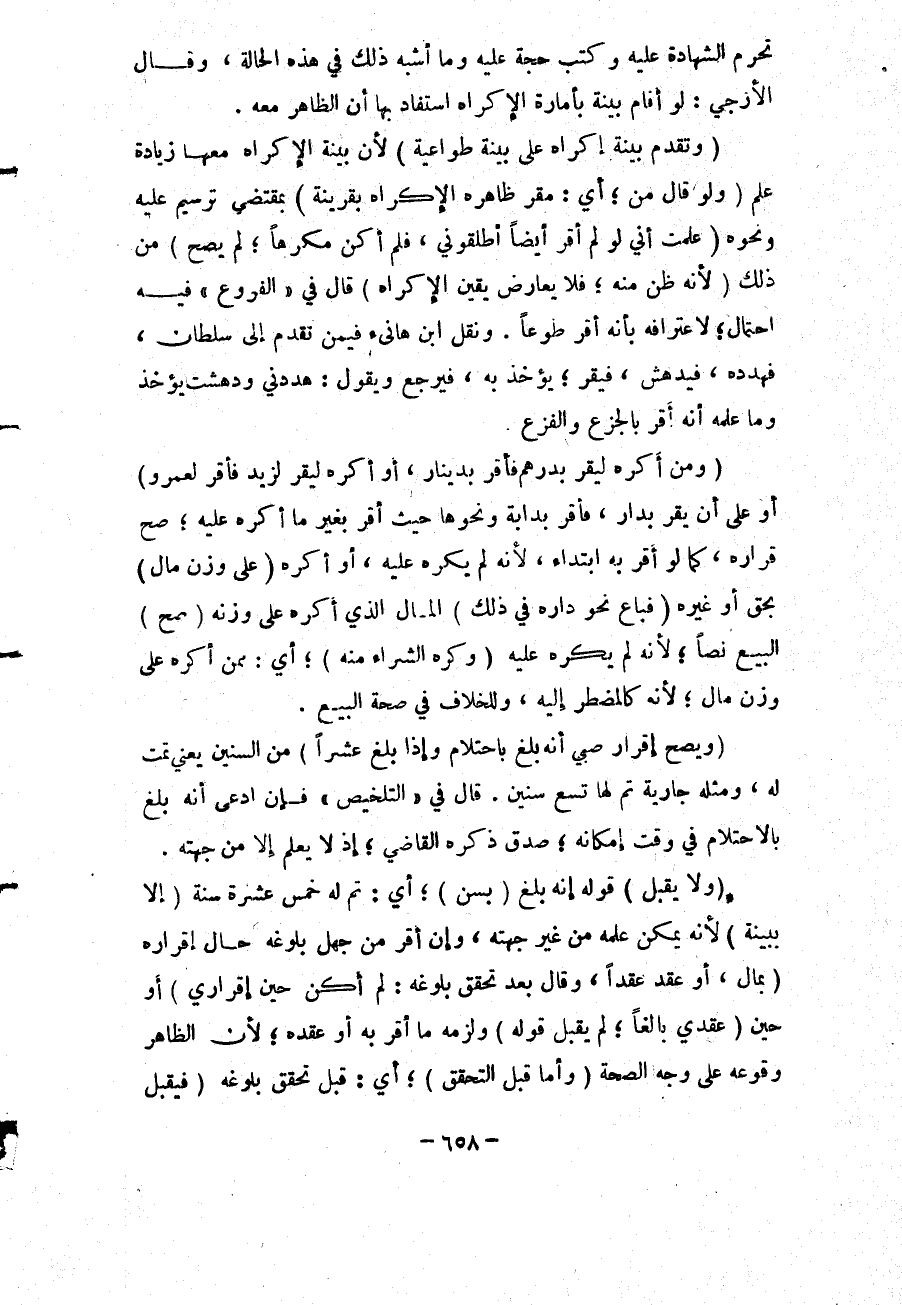 تحرم الشهادة عليه وكتب حجة عليه وما أشبه ذلك في هذه الحالة ، وقـــال
الأزجي : لو أقام بينة بأمارة الإكراه استفاد بها أن الظاهر معه .
( وتقدم بينة إكراه على بينة طواعية ) لأن بينة الإكراه معها زيادة
علم ( ولو قال من ؛ أي : مقر ظاهره الإكراه بقرينة ) بمقتضي ترسيم عليه
ونحوه ( علمت أني لو لم أقر أيضاً أطلقوني ، فلم أكن مكرهاً ؛ لم يصح ) من
ذلك ( لأنه ظن منه ؛ فلا يعارض يقين الإكراه ) قال في « الفروع » فيـــه
احتمال؛ لاعترافه بأنه أقر طوعاً . ونقل ابن هانىء فيمن تقدم إلى سلطان ،
فهدده ، فيدهش ، فيقر ؛ يؤخذ به ، فيرجع ويقول : هددني ودهشت يؤخذ
وما علمه أنه أقر بالجزع والفزع .
( ومن أكره ليقر بدرهم فأقر بدينار ، أو أكره ليقر لزيد فأقر لعمرو )
أو على أن يقر بدار ، فأقر بدابة ونحوها حيث أقر بغير ما أكره عليه ؛ صح
قراره ، كما لو أقر به ابتداء ، لأنه لم يكره عليه ، أو أكره ( على وزن مال )
بحق أو غيره ( فباع نحو داره في ذلك ) المال الذي أكره على وزنه ( صح )
البيع نصاً ؛ لأنه لم يكره عليه ( وكره الشراء منه ) ؛ أي : ممن أكره على
وزن مال ؛ لأنه كالمضطر إليه ، وللخلاف في صحة البيع .
( ويصح إقرار صبي أنه بلغ باحتلام وإذا بلغ عشراً ) من السنين يعني تمت
له ، ومثله جارية تم لها تسع سنين . قال في « التلخيص » فـإن ادعى أنه بلغ
بالاحتلام في وقت إمكانه ؛ صدق ذكره القاضي ؛ إذ لا يعلم إلا من جهته .
( ولا يقبل ) قوله إنه بلغ ( بسن ) ؛ أي : تم له خمس عشرة سنة ( إلا
ببينة ) لأنه يمكن علمه من غير جهته ، وإن أقر من جهل بلوغه حـال إقراره
( بمال ، أو عقد عقداً ، وقال بعد تحقق بلوغه : لم أكن حين إقراري ) أو
حين ( عقدي بالغاً ؛ لم يقبل قوله ) ولزمه ما أقر به أو عقده ؛ لأن الظاهر
وقوعه على وجه الصحة ( وأما قبل التحقق ) ؛ أي : قبل تحقق بلوغه ( فيقبل
– ٦٥٨ –